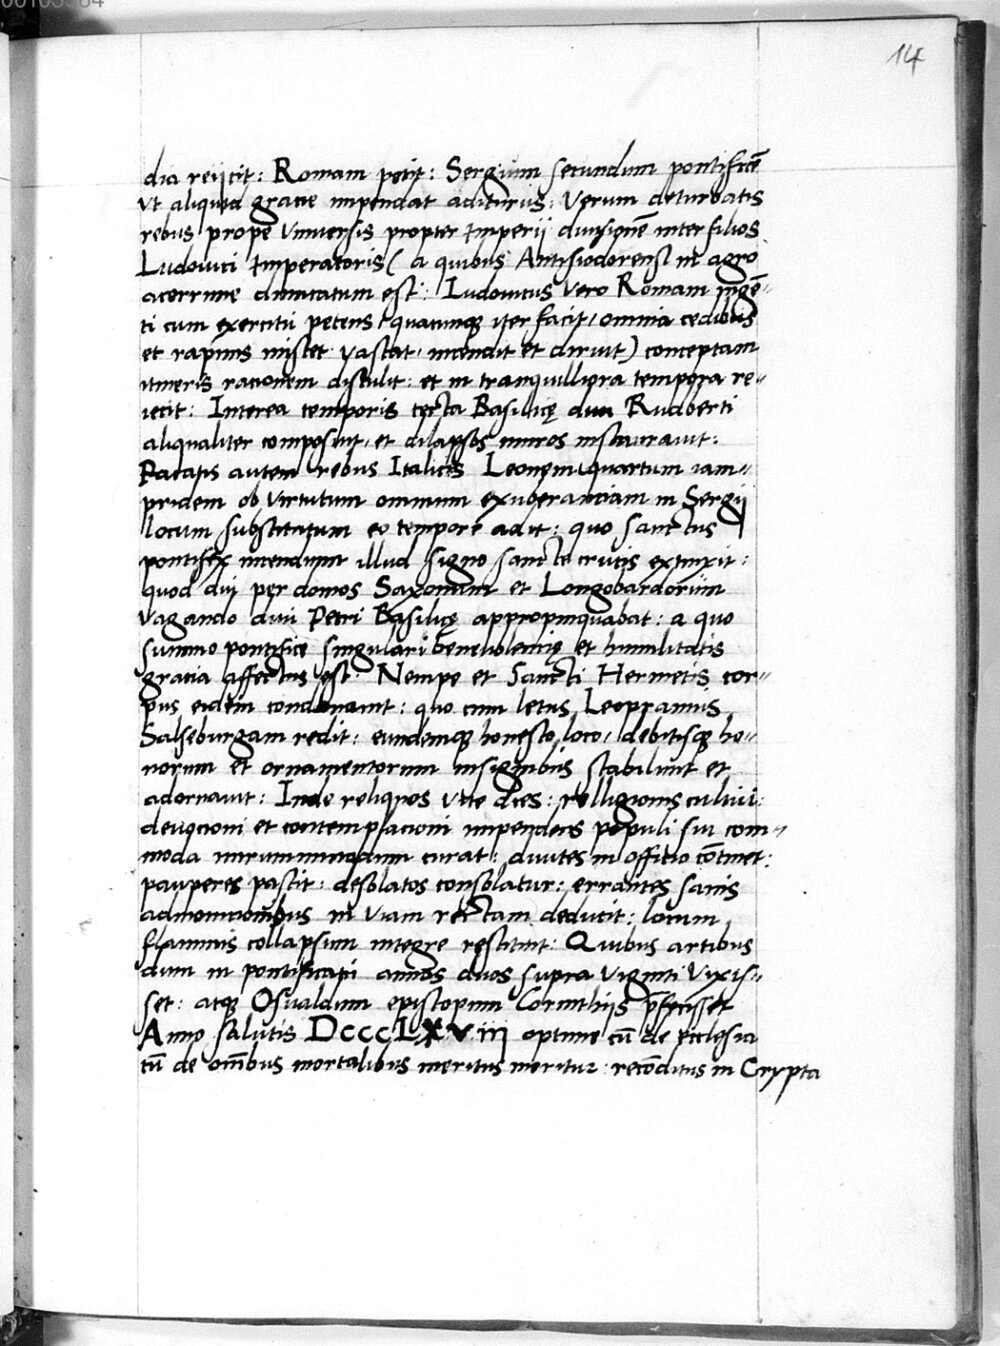 00103384
14
dia reijcit: Romam petit: Sergium secundum pontificē
vt aliquid gracie impendat aditurus: Verum deturbatis
rebus prope Vniuersis propter Imperij diuisionē inter filios
Ludouici Imperatoris ( a quibus Antisiodorensi in agro
acerrime dimicatum est: Ludouicus Vero Romam ingē-
ti cum exercitu petens quacumque iter facit, omnia cedibus
et rapinis miscet vastat, incendit et diruit) conceptam
itineris racionem distulit: et in tranquilliora tempora re-
iecit: Interea temporis tecta Basilicę diui Rudberti
aliqualiter composuit, et dilapsos muros instaurauit:
Pacatis autem rebus Italicis Leonem quartum iam-
pridem ob virtutum omnium exuberanciam in Sergij
locum substitutum eo tempore adit: quo sanctus
pontifex incendium illud signo sancte crucis extinxit:
quod dui per domos Saxonum et Longobardorum
vagando diui Petri Basilicę appropinquabat: a quo
summo pontifice singulari beneuolencię et humilitatis
gracia affectus est: Nempe et Sancti Hermetis cor-
pus eidem condonauit: quo cum letus Leoprammis
Salseburgam redit: eundemque honesto loco, debitisque ho-
norum et ornamentorum insignibus stabiliuit et
adornauit: Inde reliquos vite dies: relligionis cultui:
deuocioni et contemplacioni impendens populi sui com-
moda mirummmodum curat: diuites in offitio cōtinet:
pauperes pascit: desolatos consolatur: errantes sanis
admonicionibus in viam rectam deducit: locum
flammis collapsum integre restituit: Quibus artibus
dum in pontificatu annos duos supra viginti vixis-
set: atque Osualdum episcopum Corinthijs p̄fecisset
Anno salutis DcccLXViii optime cū de Ecclesia
tū de oīnbus mortalibus meritus moritur: recōditus in Crypta